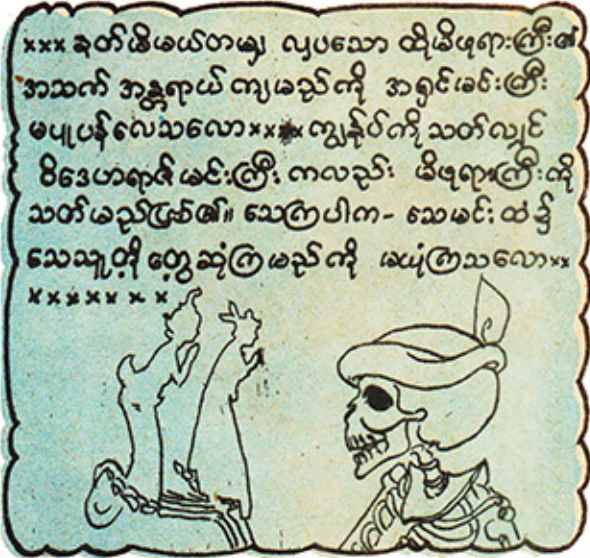 ××× နတ်ဖီမယ်တမျှ လှပသော ထိုမိဖုရားကြီး၏
အသက် အန္တရာယ် ကျမည်ကို အရှင်မင်းကြီး
မပူပန်လေသလော×××× ကျွန်ုပ်ကို သတ်လျှင်
ဝိဒေဟရာဇ် မင်းကြီး ကလည်း မိဖုရားကြီးကို
သတ်မည်ဖြစ်၏။ သေကြပါက- သေမင်းထံ၌
သေသူတို့ တွေ့ဆုံကြမည်ကို မယုံကြသလော××
×××××××